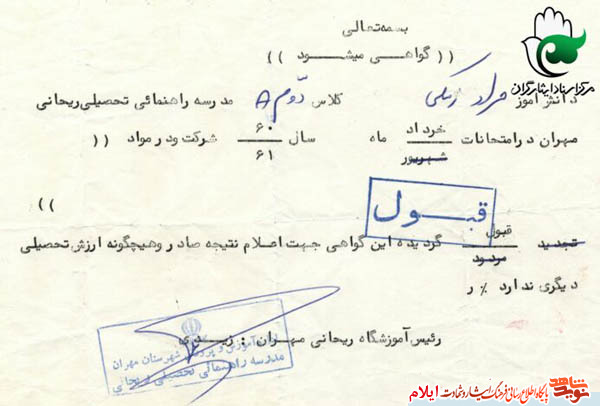 بسمه تعالی
مرکز اسناد ایثارگران
( ( گواهی میشود ) )
دانش آموز مراد کلاس دوم A مدرسه راهنمائی تحصیلی ریحانی
مهران در امتحانات خرداد / شهریور ماه سال ۶۰ / ۶۱ شرکت ودر مواد ( (
) )
قبول
تجدید قبول / مردود گردیده این گواهی جهت اعلام نتیجه صادر وهیچگونه ارزش تحصیلی
دیگری ندارد ٪ ر
رئیس آموزشگاه ریحانی مهران : زیدی
آموزش و پرورش شهرستان مهران
مدرسه راهنمائی تحصیلی ریحانی
نوید شاهد پایگاه اطلاع رسانی فرهنگ ایثار و شهادت ایلام